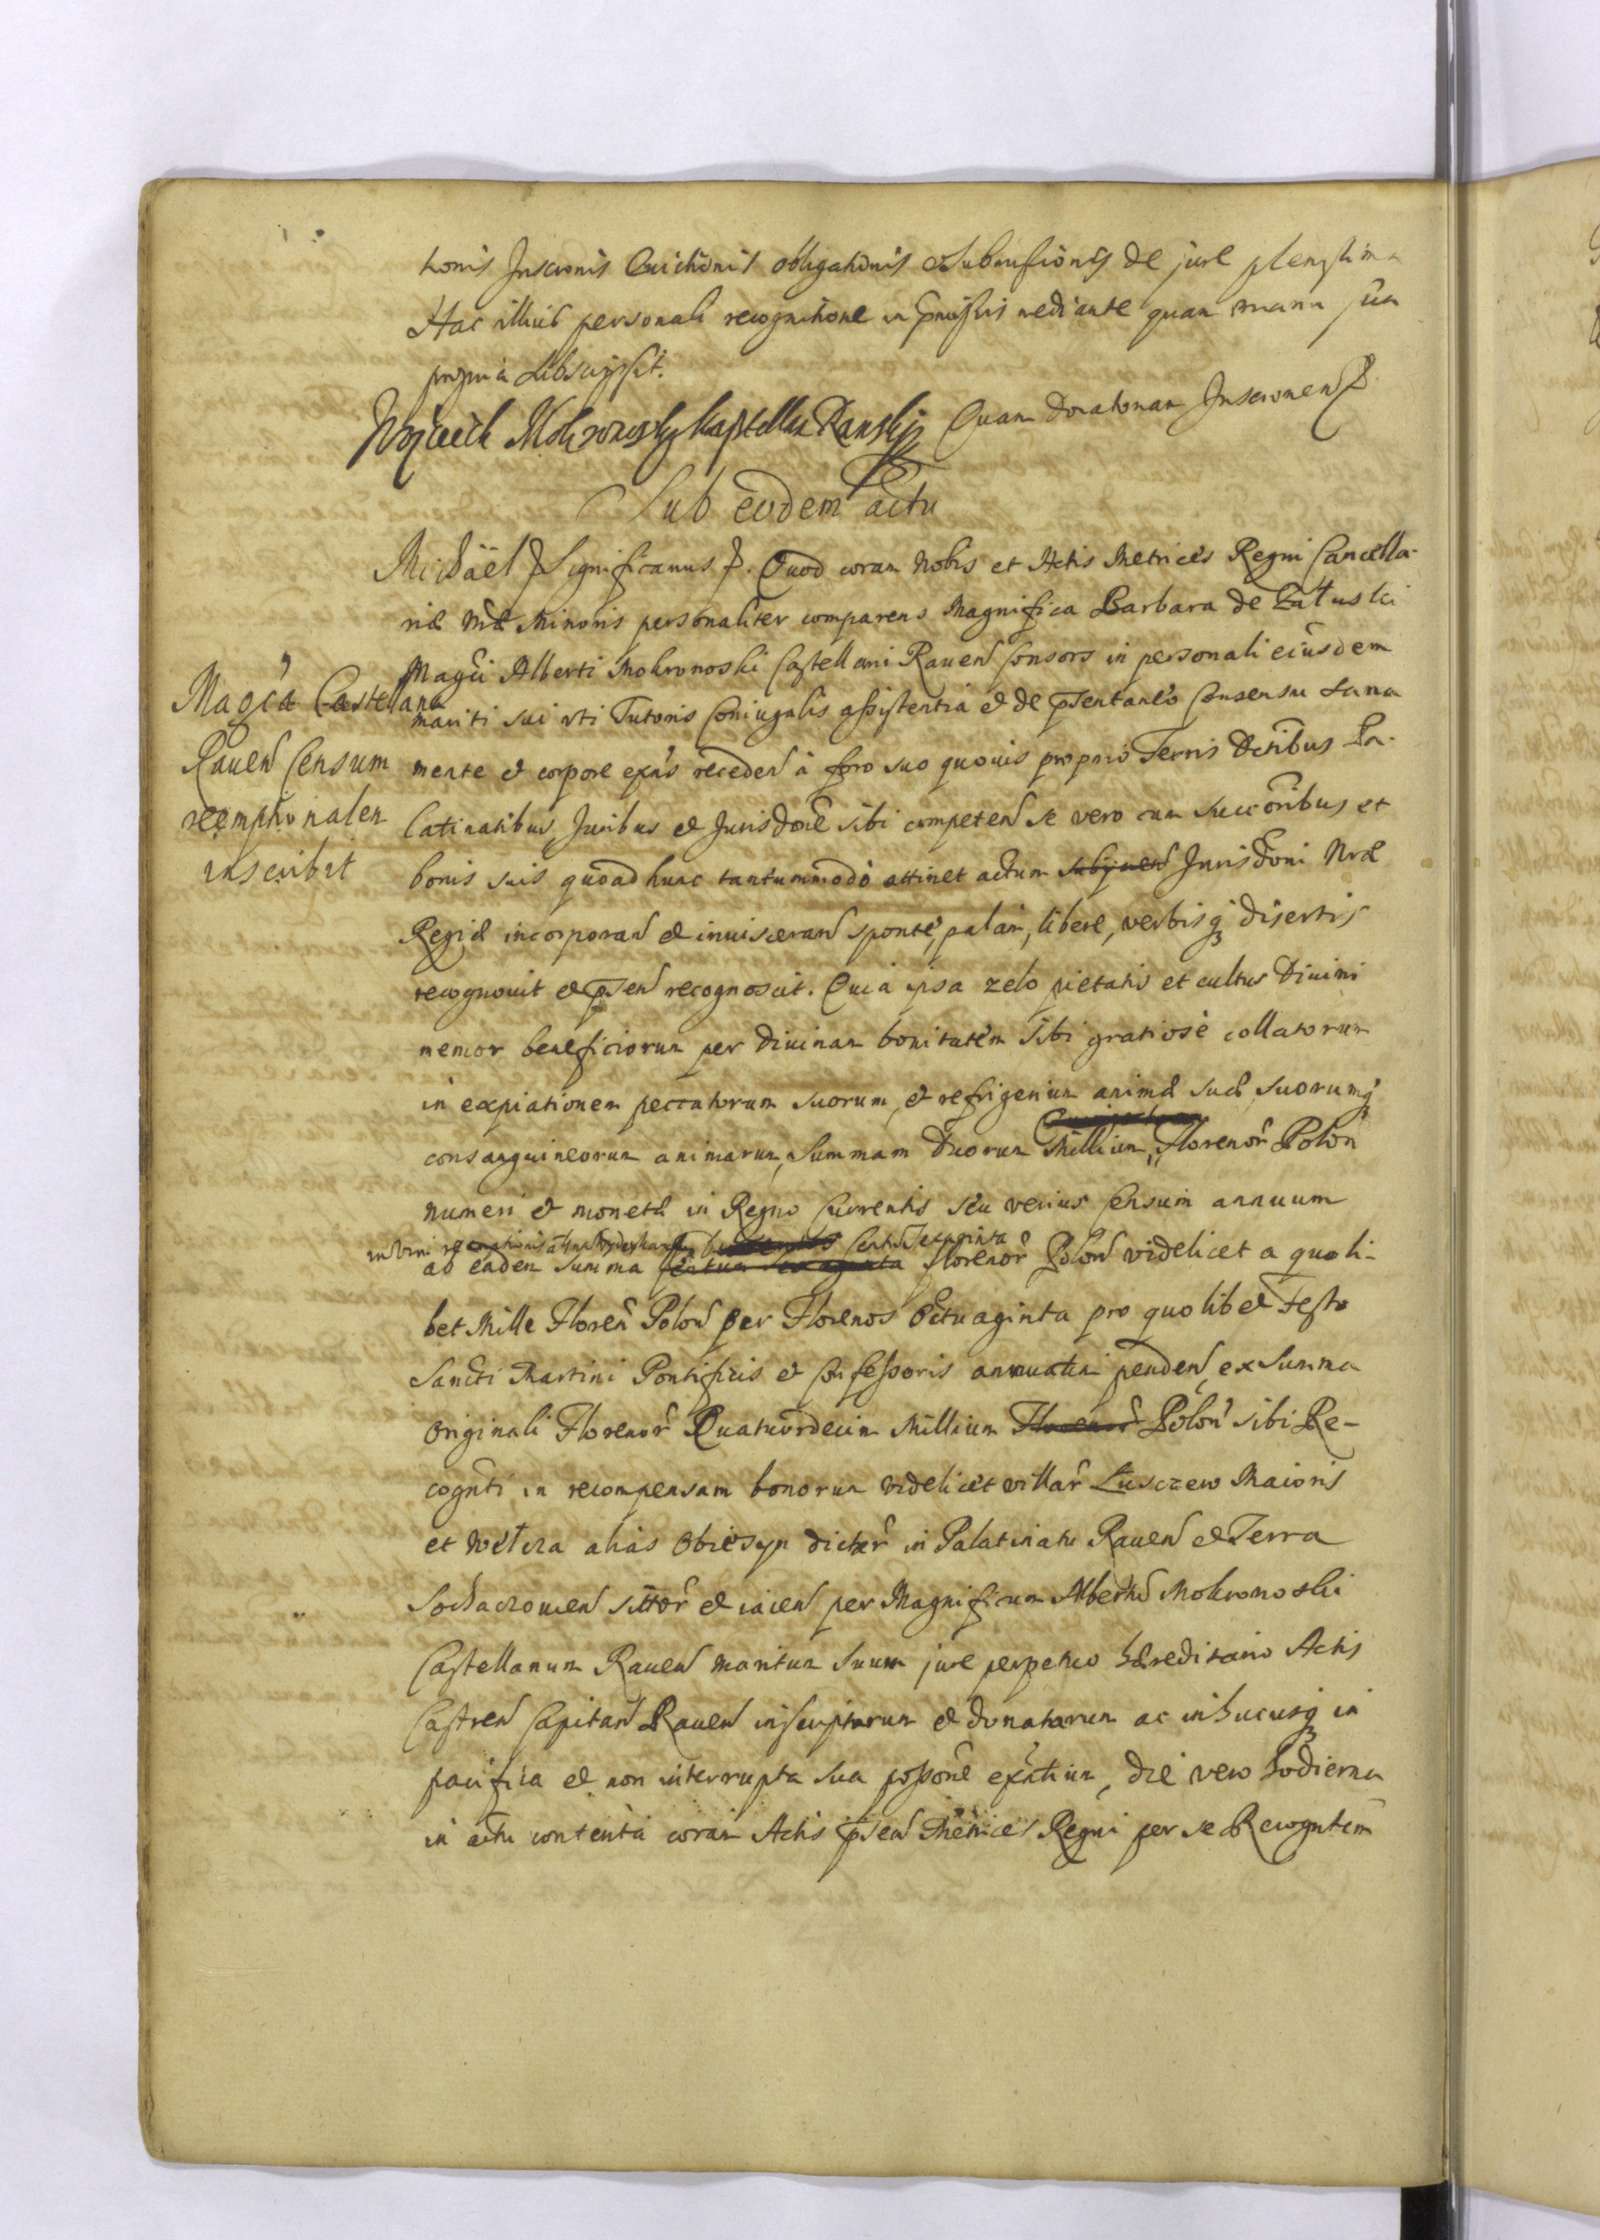 tionis Inscrōnis Evictionis obligationis et submissionis de jure plenissima
Hac illius personali recognitione in pmissis mediante quam manu sua
propria subscripsit.
Woyciech Mokronoski kasztellan Rawski Quam Donatoriam Inscrōnem
Sub eodem actu
Michaël Significamus. Quod coram Nobis et Actis Metrices Regni Cancella-
riæ Nræ Minoris personaliter comparens Magnifica Barbara de Załuski
Magci Alberti Mokronoski Castellani Raven Consors in personali eiusdem
mariti sui uti Tutoris Coniugalis assistentia et de psentaneo Consensu sana
Magca Castellana
Raven Censum
reemptionalem
inscribit
mente et corpore exns receden à foro suo quovis proprio Terris Dctibus Pa-
latinatibus Juribus et Jurisdone sibi competen se vero cum succoribus et
bonis suis quoad hunc tantummodo attinet actum subijcien Jurisdoni Nræ
Regiæ incorporan et inviscerans sponte, palam, libere, verbisq disertis
recognovit et psen recognoscit. Quia ipsa zelo pietatis et cultus Divini
memor beneficiorum per divinam bonitatem sibi gratiosè collatorum
in expiationem peccatorum suorum, et refrigerium animæ suæ, suorumq
consanguineorum animarum, Summam Duorum Millium Florenor Polon
numeri et monetæ in Regno currentis seu verius Censum annuum
Centum sexaginta
ab eadem summa Centum sexaginta florenor Polon videlicet a quoli-
bet Mille Floren Polon per Florenos Octuaginta pro quolibet Festo
Sancti Martini Pontificis et Confessoris annuatim penden, ex Summa
Originali Florenor Quatuordecim Millium Florenor Polon sibi Re-
cognti in recompensam bonorum videlicet villar Łusczew Maioris
et Wełcza alias Obiesyn dictar in Palatinatu Raven et Terra
Sochaczovien sittar et iacen per Magnificum Albertu Mokronoski
Castellanum Raven maritum suum jure perpetuo hæreditario Actis
Castren Capitan Raven inscriptarum et donatarum ac in hucusq in
pacifica et non interrupta sua possone exntium, die vero hodierna
in actu contenta coram Actis psen Metrices Regni per se Recogntem